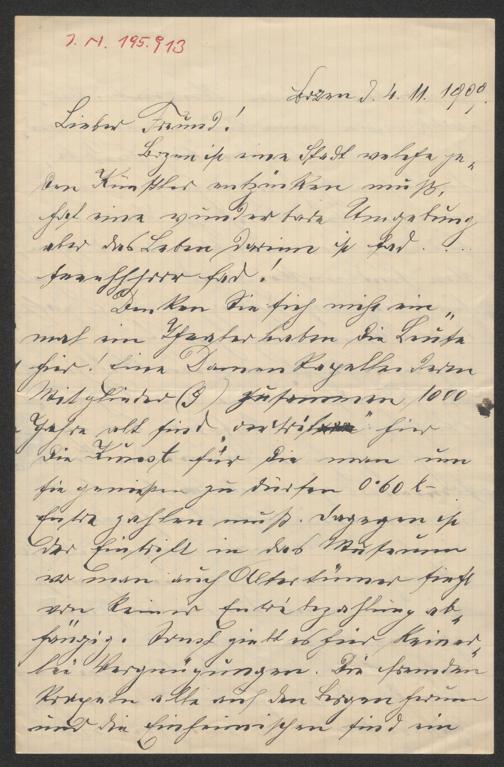 J. N. 195.913
Bozen d. 4. 11. 1909.
Lieber Freund!
Bozen ist eine Stadt welche je-
den Künstler entzücken muß,
hat eine wunderbare Umgebung
aber das Leben darinn ist fad . . .
seeehhhrrr fad!
Denken Sie sich nicht ein-
mal ein Theater haben die Leute
hier! Eine Damen Kapelle deren
Mitglieder (9) zusammen 1000
Jahre alt sind, hier
die Kunst für die man um
sie genießen zu dürfen 0·60 K
Entré zahlen muß. Dagegen ist
der Eintritt in das Museum
wo man auch Altertümer sieht
von keiner Entrébezahlung ab-
hängig. Sonst giebt es hier keiner-
lei Vergnügungen. Die Fremden
krapeln alle auf den Bergen herum
und die Einheimischen sind ein